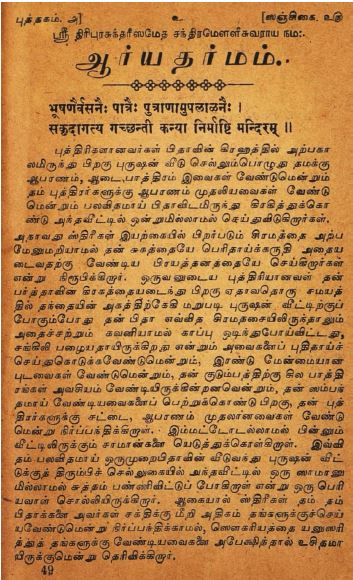 புத்தகம். அ] உ [ஸஞ்சிகை. உக
ஸ்ரீ திரிபுரசுந்தரீஸமேத சந்திரமௌளீசுவராய நம:.
ஆர்யதர்மம்.
भूषणैर्वसनैः पात्रैः पुत्राणामुपलालनैः ।
सकृदागत्य गच्छन्ती कन्या निर्मार्ष्टि मन्दिरम् ॥
புத்திரிகளானவர்கள் பிதாவின் கிரஹத்தில் அற்பகா
லமிருந்து பிறகு புருஷன் வீடு செல்லும்பொழுது தமக்கு
ஆபரணம், ஆடை,பாத்திரம் இவைகள் வேண்டுமென்றும்
தம் புத்திரர்களுக்கு ஆபரணம் முதலியவைகள் வேண்டு
மென்றும் பலவிதமாய் பிதாவிடமிருந்து கிரகித்துக்கொ
ண்டு அந்தவீட்டில் ஒன்றுமில்லாமல் செய்துவிடுகிறார்கள்.
அதாவது ஸ்திரீகள் இயற்கையில் பிறர்படும் சிரமத்தை அற்ப
மேனுமறியாமல் தன் சுகத்தையே பெரிதாய்க்கருதி அதையடைவதற்கு வேண்டிய பிரயத்தனத்தையே செய்கிறார்கள்
என்று நிரூபிக்கிறார். ஒருவனுடைய புத்திரியானவள் தன்
பர்த்தாவின் கிரகத்தையடைந்து பிறகு ஏதாவதொரு சமயத்
தில் தந்தையின் அகத்திற்கேகி மறுபடி புருஷன் வீட்டிற்குப்
போகும்போது தன் பிதா எவ்வித சிரமதசையிலிருந்தாலும்
அதைச்சற்றும் கவனியாமல் காப்பு ஒடிந்துபோய்விட்டது,
சங்கிலி பழையதாயிருக்கிறது என்றும் அவைகளைப் புதிதாய்ச்
செய்துகொடுக்கவேண்டுமென்றும், இரண்டு மேன்மையான
புடவைகள் வேண்டுமென்றும், தன் குடும்பத்திற்கு சில பாத்தி
ரங்கள் அவசியம் வேண்டியிருக்கின்றனவென்றும், தன் ஸம்பந்
தமாய் வேண்டியவைகளைப் பெற்றுக்கொண்டு பிறகு, தன் புத்
திரர்களுக்கு சட்டை, ஆபரணம் முதலானவைகள் வேண்டு
மென்று நிர்ப்பந்திக்கிறாள். இம்மட்டோடல்லாமல் பின்னும்
வீட்டிலிருக்கும் சாமான்களை யெடுத்துக்கொள்கிறாள். இவ்வி
தம் பலவிதமாய் ஒருமுறைபிதாவின் வீடுவந்து புருஷன் வீட்
டுக்குத் திரும்பிச் செல்லுகையில் அந்தவீட்டில் ஒரு ஸாமானு
மில்லாமல் சுத்தம் பண்ணிவிட்டுப் போகிறாள் என்று ஒரு பெரி
யவாள் சொல்லியிருக்கிறார். ஆகையால் ஸ்திரீகள் தம் தம்
பிதாக்களை அவர்கள் சக்திக்கு மீறி அதிகம் தங்களுக்குச்செய்
யவேண்டுமென்று நிர்ப்பந்திக்காமல், ஸௌகரியத்தை யனுஸரி
த்துத் தங்களுக்கு வேண்டியவைகளை அபேக்ஷித்தால் உசிதமா
யிருக்குமென்று தெரிவிக்கிறார்.
49